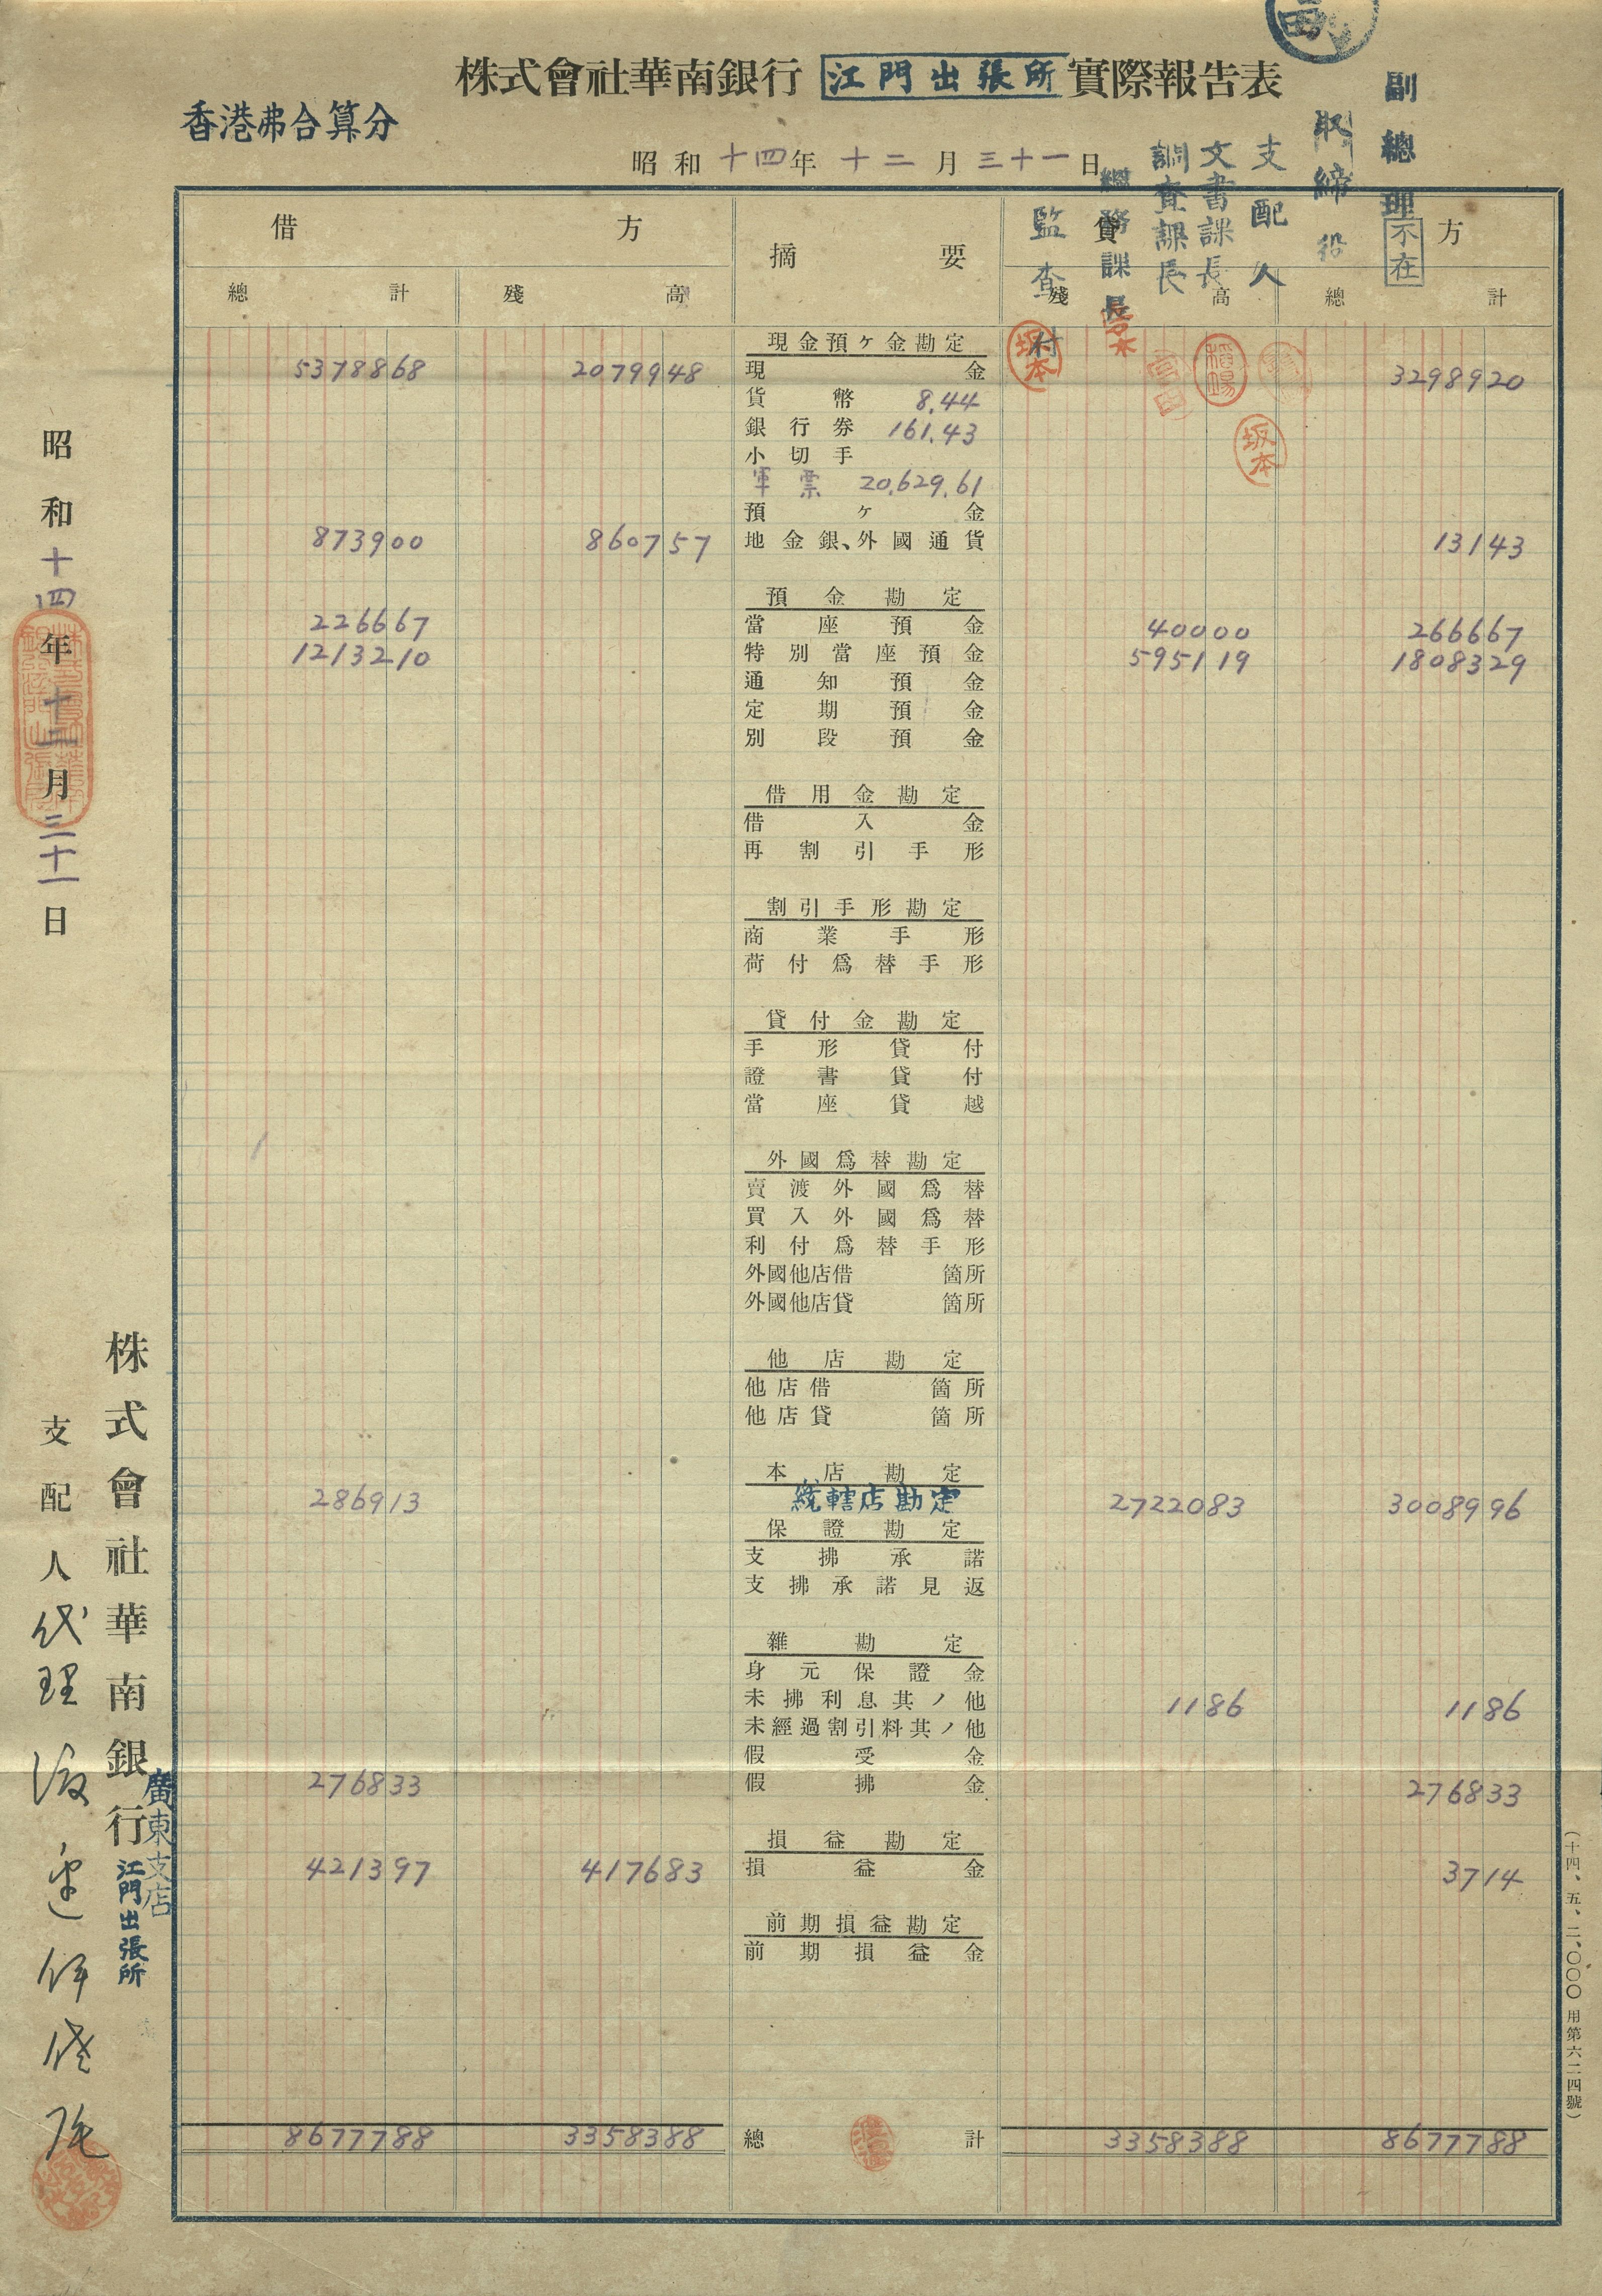 株式會社華南銀行 江門出張所 實際報告表
香港弗合算分
昭和十四年十二月三十一日
副總理
不在
取締役
支配人
文書課長
調査課長
總務課長
監査
借方 摘要 貸方
總計 殘高 殘高 總計
現金預ヶ金勘定
5378868 2079948 現金 3298920
貨幣 8.44
銀行券 161.43
小切手
軍票 20,629.61
預ヶ金
873900 860757 地金銀、外國通貨 13143
預金勘定
226667 當座預金 40000 266667
1213210 特別當座預金 595119 1808329
通知預金
定期預金
別段預金
借用金勘定
借入金
再割引手形
割引手形勘定
商業手形
荷付爲替手形
貸付金勘定
手形貸付
證書貸付
當座貸越
外國爲替勘定
賣渡外國爲替
買入外國爲替
利付爲替手形
外國他店借 箇所
外國他店貸 箇所
他店勘定
他店借 箇所
他店貸 箇所
本店勘定
286913 統轄店勘定 2722083 3008996
保證勘定
支拂承諾
支拂承諾見返
雜勘定
身元保證金
未拂利息其ノ他 1186 1186
未經過割引料其ノ他
假受金
276833 假拂金 276833
損益勘定
421397 417683 損益金 3714
前期損益勘定
前期損益金
8677788 3358388 總計 3358388 8677788
坂本
坂本
昭和十四年十二月三十一日
株式會社華南銀行廣東支店江門出張所
支配人代理
(十四、五、二、〇〇〇 用第六二四號)